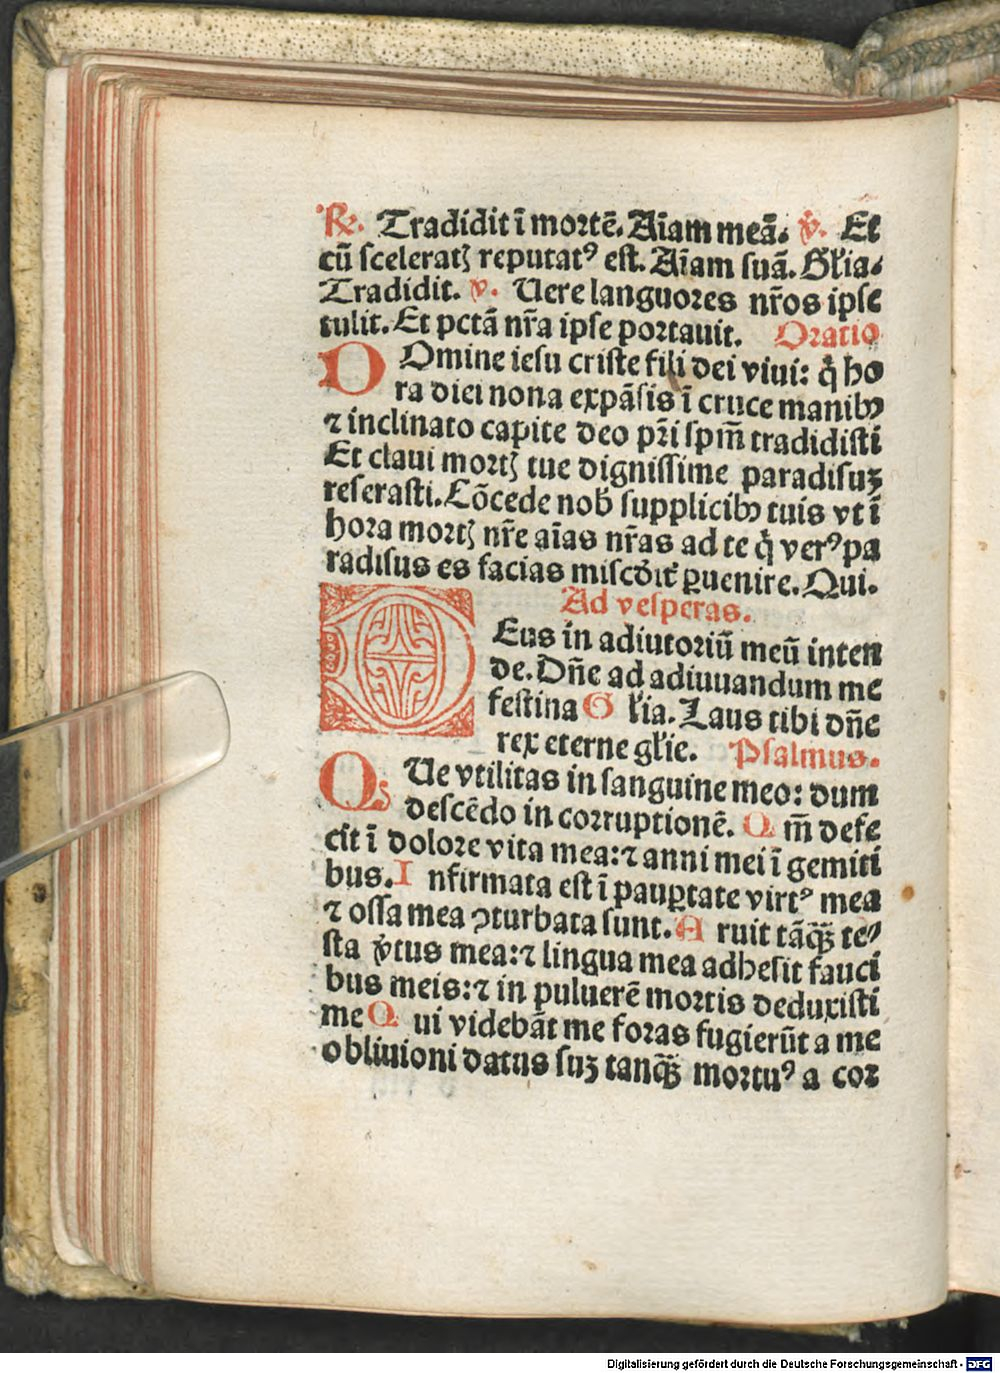 ℞. Tradidit ī mortē. Aīam meā. ℣. Et
cū sceleratꝫ reputatꝰ est. Aīam suā. Gl̄ia.
Tradidit. v. Uere languores nr̄os ipse
tulit. Et pctā nr̄a ipse portauit. Oratio
DOmine iesu criste fili dei viui: q̇ ho
ra diei nona expāsis ī cruce manibꝫ
⁊ inclinato capite deo pr̄i spm̄ tradidisti
Et claui mortꝫ tue dignissime paradisuꝫ
reserasti. Cōcede nob̄ supplicibꝫ tuis vt ī
hora mortꝫ nr̄e aīas nr̄as ad te q̇ verꝰ pa
radisus es facias miscd̄it̄ ꝑuenire. Qui.
Ad vesperas.
DEus in adiutoriū meū inten
de. Dn̄e ad adiuuandum me
festina Gl̄ia. Laus tibi dn̄e
rex eterne gl̄ie. Psalmus.
QUe vtilitas in sanguine meo: dum
descēdo in corruptionē. Qm̄ defe
cit ī dolore vita mea: ⁊ anni mei ī gemiti
bus. Infirmata est ī pauꝑtate virtꝰ mea
⁊ ossa mea ꝯturbata sunt. Aruit tāqꝫ̄ te⸗
sta v̇tus mea: ⁊ lingua mea adhesit fauci
bus meis: ⁊ in puluerē mortis deduxisti
me Qui videbāt me foras fugierūt a me
obliuioni datus suꝫ tanqꝫ̄ mortuꝰ a cor
Digitalisierung gefördert durch die Deutsche Forschungsgemeinschaft - DFG